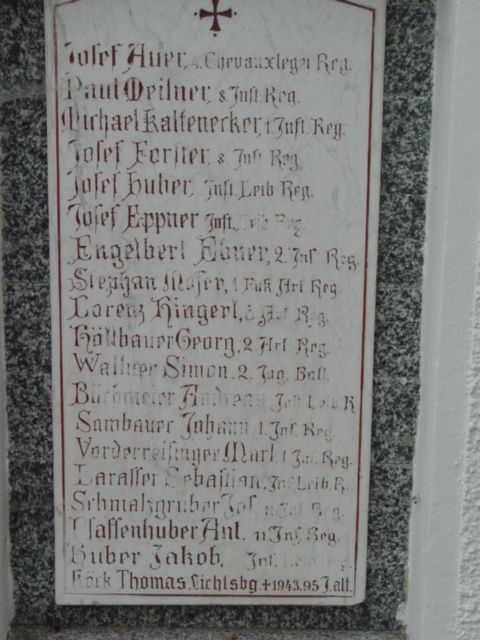 Josef Auer, 4. Chevauxleger Reg.
Paul Meilner, 8 Inft. Reg.
Michael Kaltenecker, 1 Inft. Reg.
Josef Forster, 8 Inft. Reg.
Josef Huber, Inft. Leib Reg.
Josef Eppner Inft. Leib Reg.
Engelbert Ebner, 2. Inf. Reg.
Stephan Moser, 1 Fuß Art Reg.
Lorenz Hingerl, Art Reg.
Höllbauer Georg, 2 Art Reg.
Wallner Simon, 2. Jag. Batt.
Büchmeier Andreas Inf. Leib. R
Sambauer Johann 1. Inf. Reg.
Vorderreisinger Mart. 1 Inf. Reg.
Larasser Sebastian, Inf Leib. R.
Schmalzgruber Jos. 11 Inf. Reg.
Pfaffenhuber Ant. 11 Inf. Reg.
Huber Jakob. Inf. Reg.
Köck Thomas, Lichtsbg. +1943. 95 J. alt.